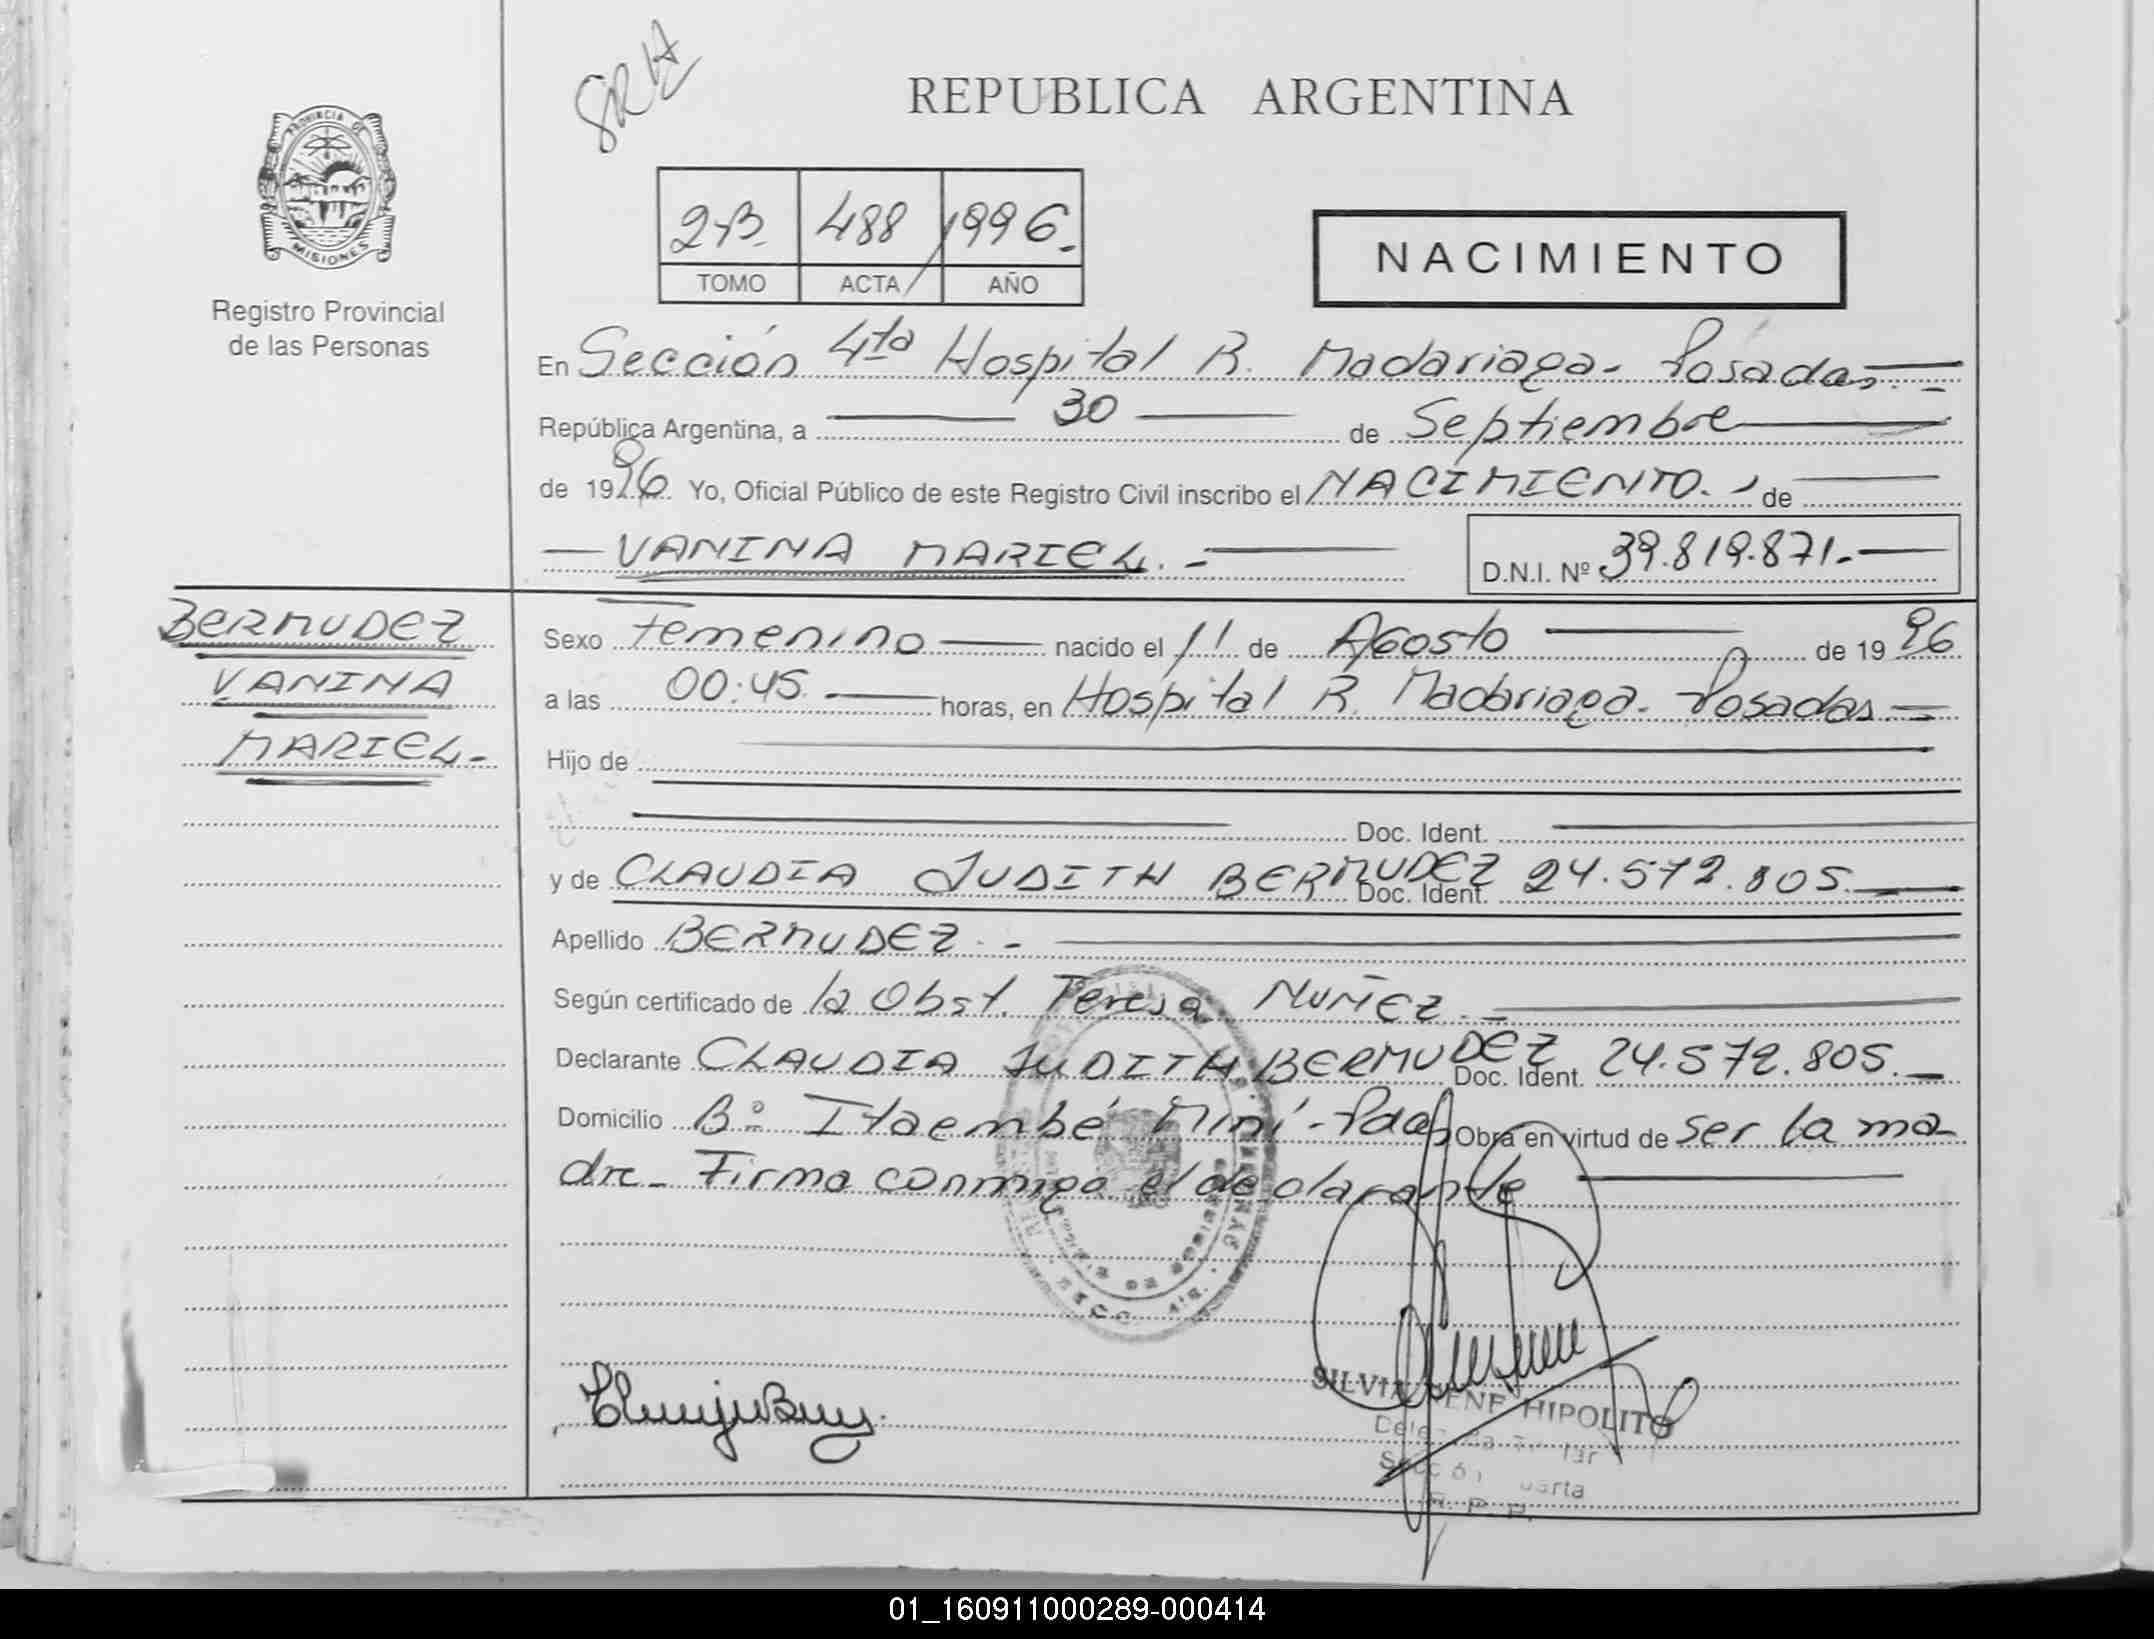 SRH
REPUBLICA ARGENTINA
PROVINCIA DE
MISIONES
Registro Provincial
de las Personas
2-B- 488 1996.-
TOMO ACTA AÑO
NACIMIENTO
En Sección 4ta Hospital R. Madariaga- Posadas.-
República Argentina, a 30 de Septiembre
de 1996. Yo, Oficial Público de este Registro Civil inscribo el NACIMIENTO.- de
VANINA MARIEL.-
D.N.I. Nº 39.819.871.-
BERMUDEZ
VANINA
MARIEL-
Sexo Femenino nacido el 11 de Agosto de 1996
a las 00:45. horas, en Hospital R. Madariaga- Posadas.-
Hijo de
Doc. Ident.
y de CLAUDIA JUDITH BERMUDEZ Doc. Ident. 24.572.805.-
Apellido BERMUDEZ.-
Según certificado de la Obst. Teresa NUÑEZ.-
Declarante CLAUDIA JUDITH BERMUDEZ Doc. Ident. 24.572.805.-
Domicilio Bº Itaembé Miní-Pdas Obra en virtud de ser la ma-
dre- Firma conmigo el declarante
SILVIA HIPOLITO
R. P. P.
01_160911000289-000414